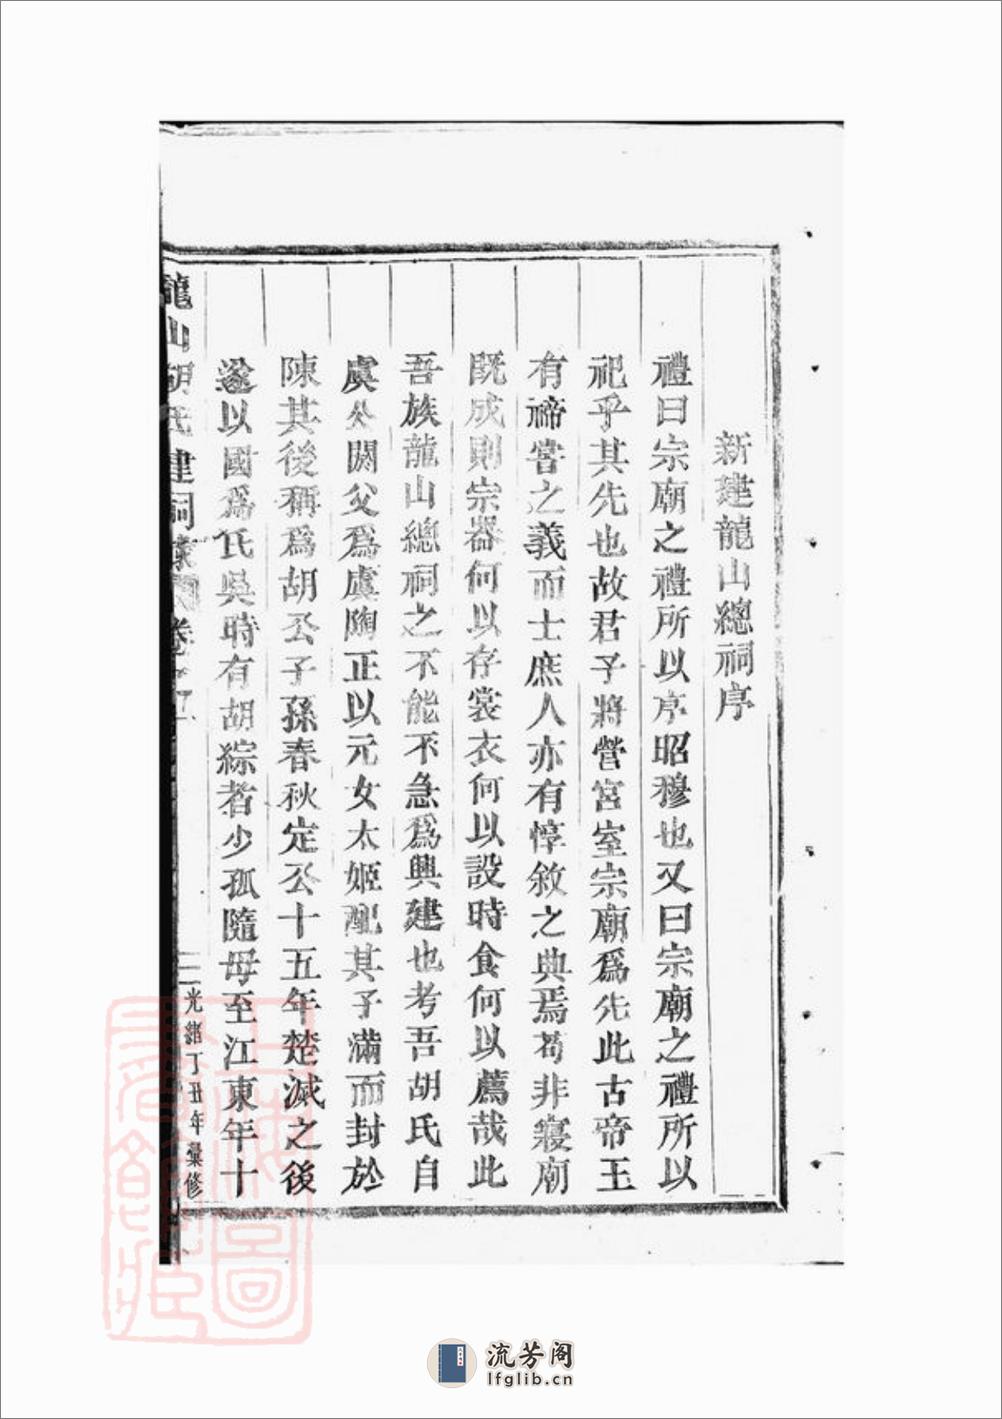 新建龍山總祠序
禮曰宗廟之禮所以序昭穆也又曰宗廟之禮所以
祀乎其先也故君子將營宮室宗廟爲先此古帝王
有禘嘗之義而士庶人亦有惇敘之典焉茍非寢廟
旣成則宗器何以存裳衣何以設時食何以薦哉此
吾族龍山總祠之不能不急爲興建也考吾胡氏自
虞公閼父爲虞陶正以元女太姬配其子滿而封於
陳其後稱爲胡公子孫春秋定公十五年楚滅之後
遂以國爲氏吳時有胡綜者少孤隨母至江東年十
龍山胡氏建祠 卷
光緒丁丑年彙修
流芳阁
lfglib.cn